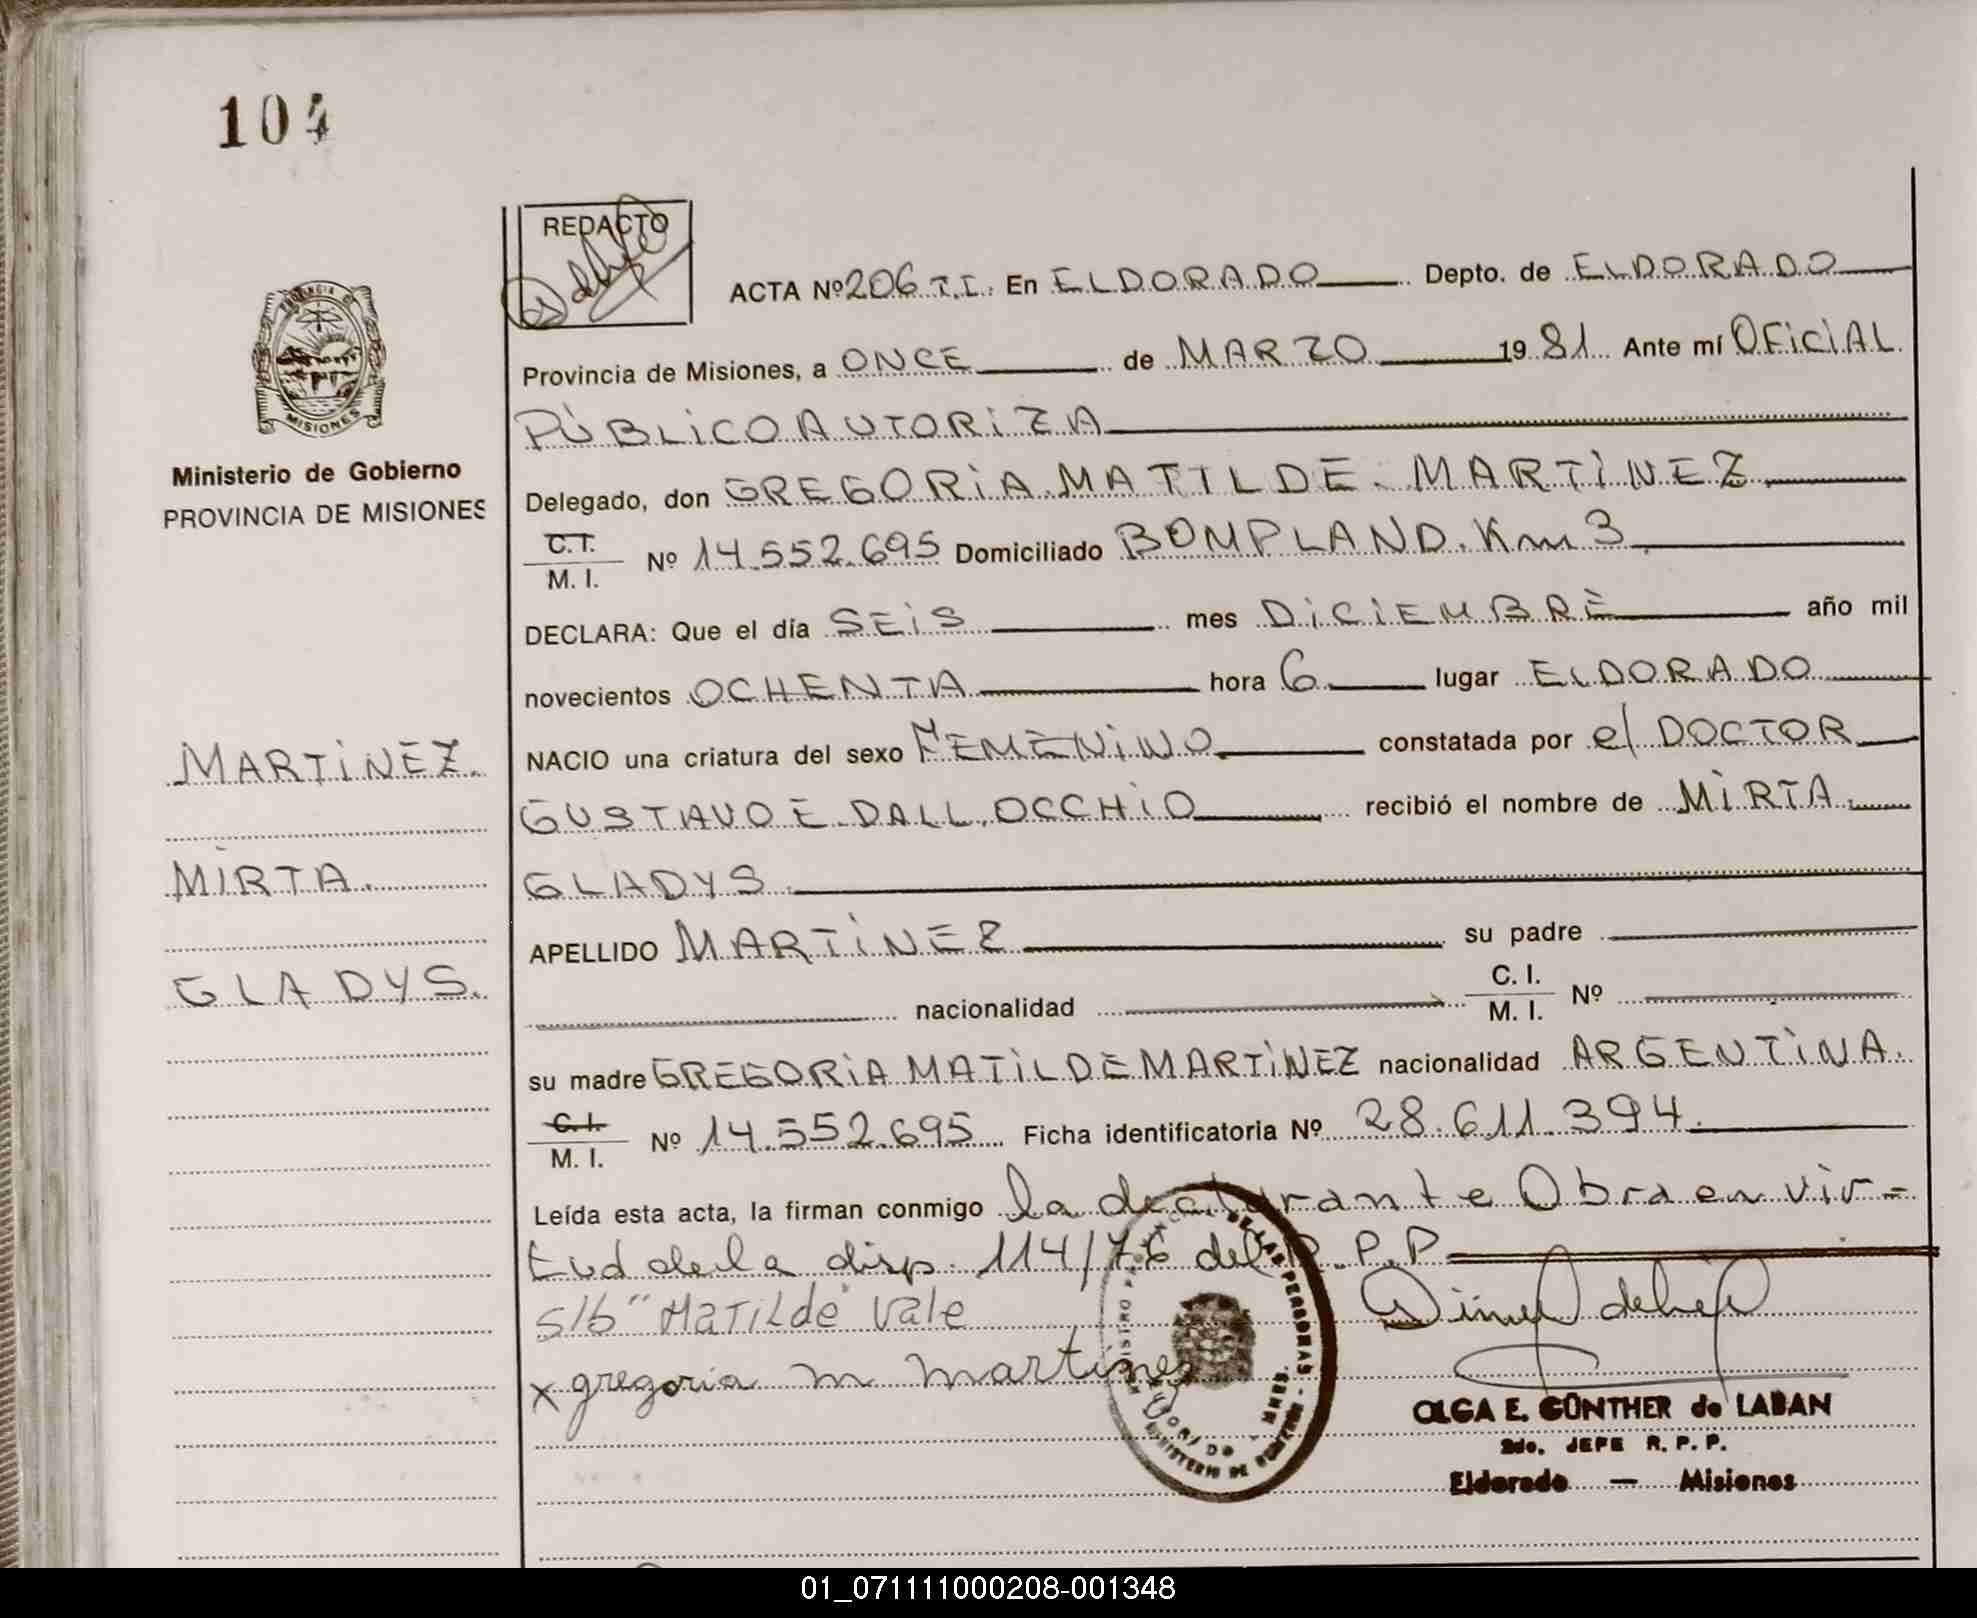 104
REDACTO
ACTA Nº 206 T.I. En ELDORADO Depto. de ELDORADO
Provincia de Misiones, a ONCE de MARZO 19 81 Ante mí OFICIAL
PÚBLICO AUTORIZA
Delegado, don GREGORIA MATILDE MARTINEZ
C.I.
M. I. Nº 14.552.695 Domiciliado BOMPLAND. Km 3
DECLARA: Que el día SEIS mes DICIEMBRE año mil
novecientos OCHENTA hora 6 lugar ELDORADO
NACIO una criatura del sexo FEMENINO constatada por el DOCTOR
GUSTAVO E. DALL OCCHIO recibió el nombre de MIRTA
GLADYS
APELLIDO MARTINEZ su padre
nacionalidad C. I.
M. I. Nº
su madre GREGORIA MATILDE MARTINEZ nacionalidad ARGENTINA.
C.I.
M. I. Nº 14.552.695 Ficha identificatoria Nº 28.611.394.
Leída esta acta, la firman conmigo la declarante Obra en vir-
tud de la disp. 114/76 del R.P.P
s/b "MATILDE" Vale
x gregoria m martines
OLGA E. GÜNTHER de LABAN
2do. JEFE R. P. P.
Eldorado — Misiones
PROVINCIA DE
MISIONES
Ministerio de Gobierno
PROVINCIA DE MISIONES
MARTINEZ.
MIRTA.
GLADYS.
DE LAS PERSONAS
01_071111000208-001348